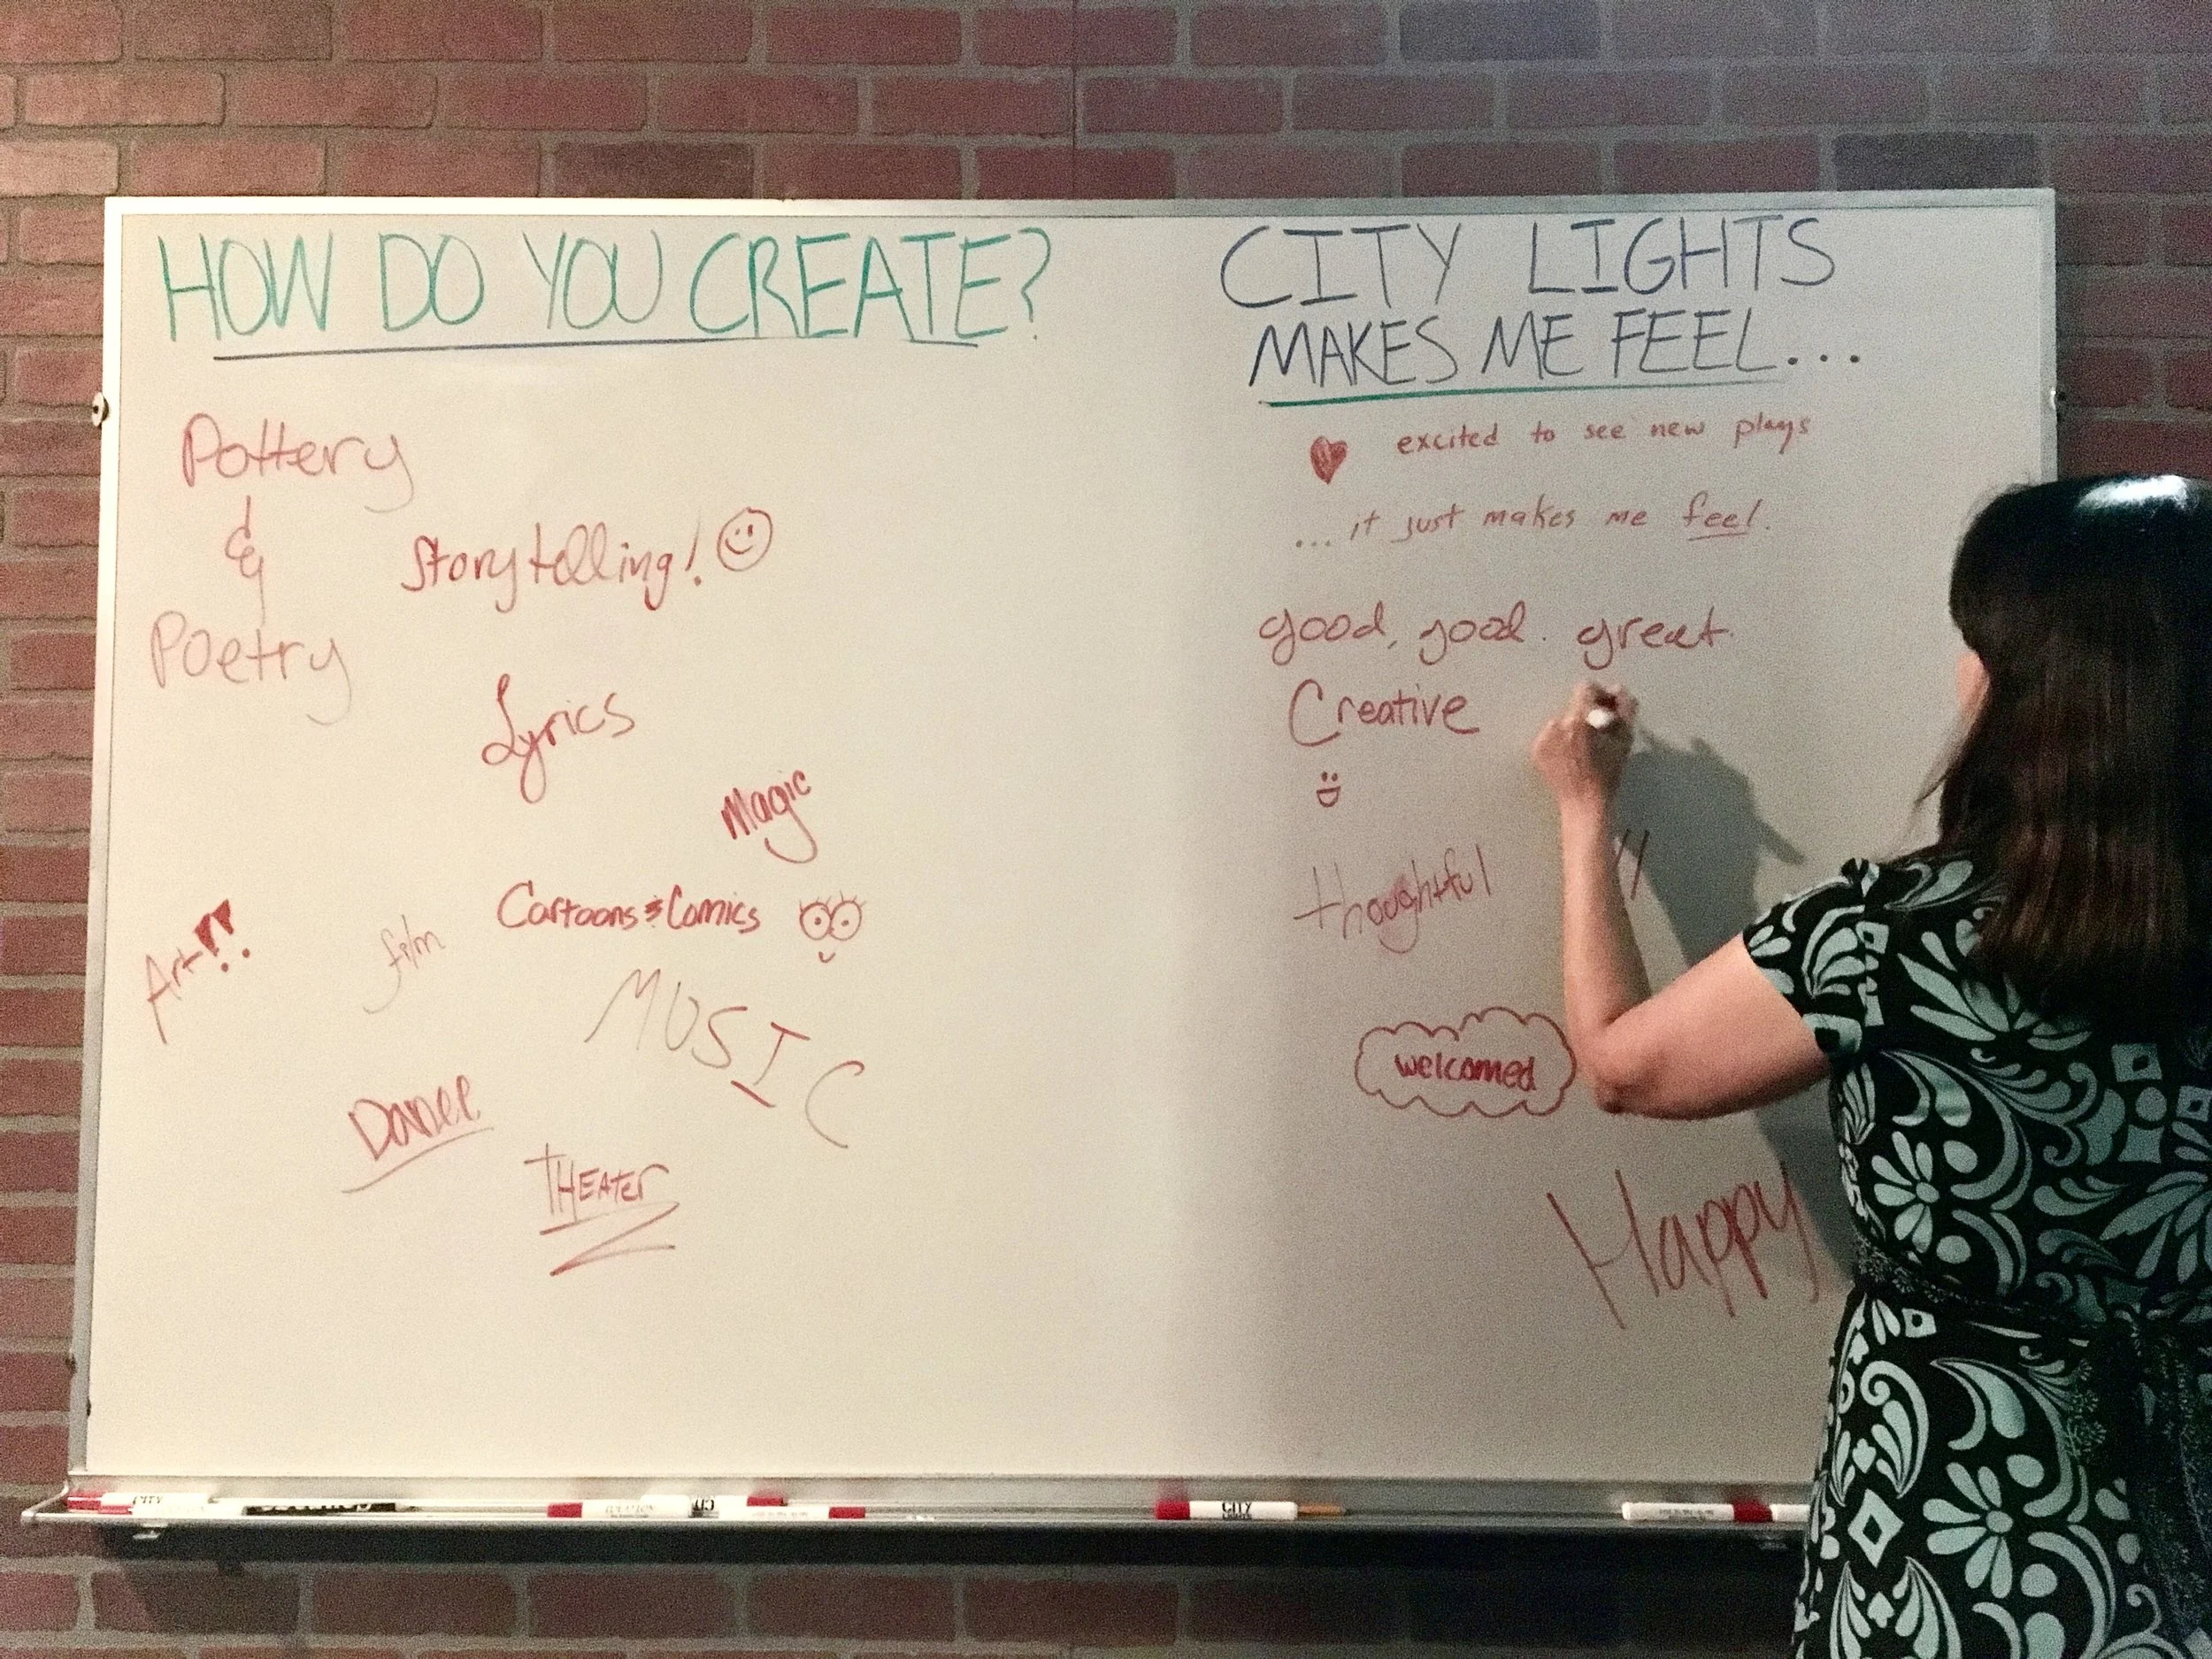 HOW DO YOU CREATE?
Pottery
&
Poetry
Storytelling!
Lyrics
Magic
Cartoons & Comics
Art!!
film
MUSIC
Dance
THEATer
CITY LIGHTS
MAKES ME FEEL...
excited to see new plays
...it just makes me feel.
good, good. great.
Creative
thoughtful
welcomed
Happy
CITY
CITY